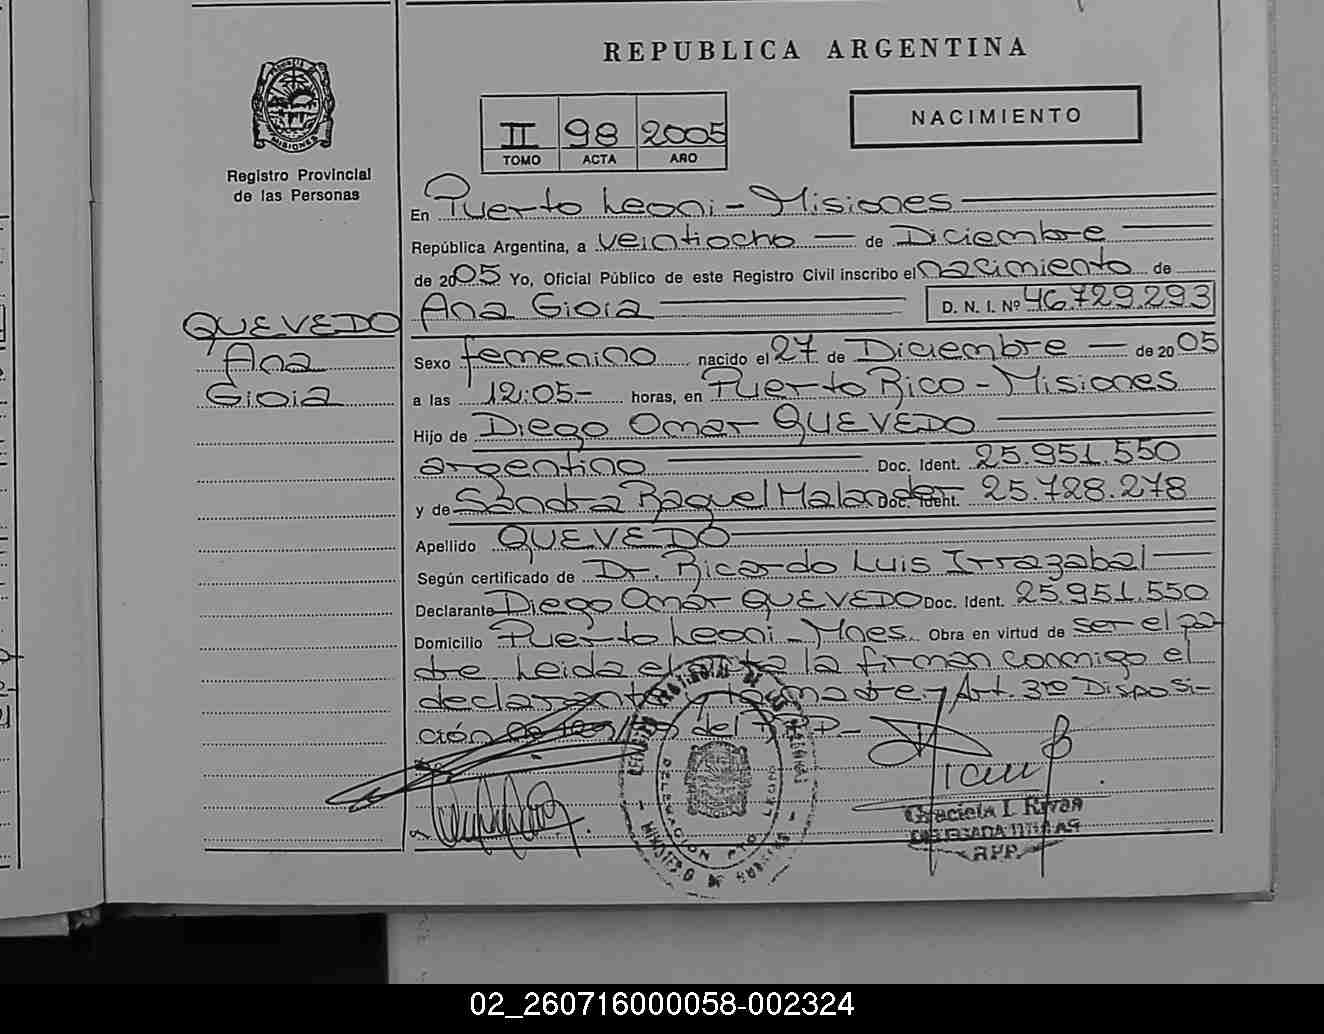 REPUBLICA ARGENTINA
NACIMIENTO
II 98 2005
TOMO ACTA AÑO
MISIONES
Registro Provincial
de las Personas
QUEVEDO
Ana
Gioia
En Puerto Leoni - Misiones
República Argentina, a veintiocho de Diciembre
de 2005 Yo, Oficial Público de este Registro Civil inscribo el nacimiento de
Ana Gioia D. N. I. Nº 46.729.293
Sexo femenino nacido el 27 de Diciembre de 2005
a las 12:05- horas, en Puerto Rico - Misiones
Hijo de Diego Omar QUEVEDO
argentino Doc. Ident. 25.951.550
y de Sandra Raquel Malander Doc. Ident. 25.728.278
Apellido QUEVEDO
Según certificado de Dr. Ricardo Luis Irrazabal
Declarante Diego Omar QUEVEDO Doc. Ident. 25.951.550
Domicilio Puerto Leoni - Mnes. Obra en virtud de ser el pa-
dre Leida el acta la firman conmigo el
declarante y la madre.- Art. 3ro Disposi-
ción del R.P.P.-
DELEGACION PTO LEONI
Graciela I. Rivas
DELEGADA TITULAR
RPP
02_260716000058-002324